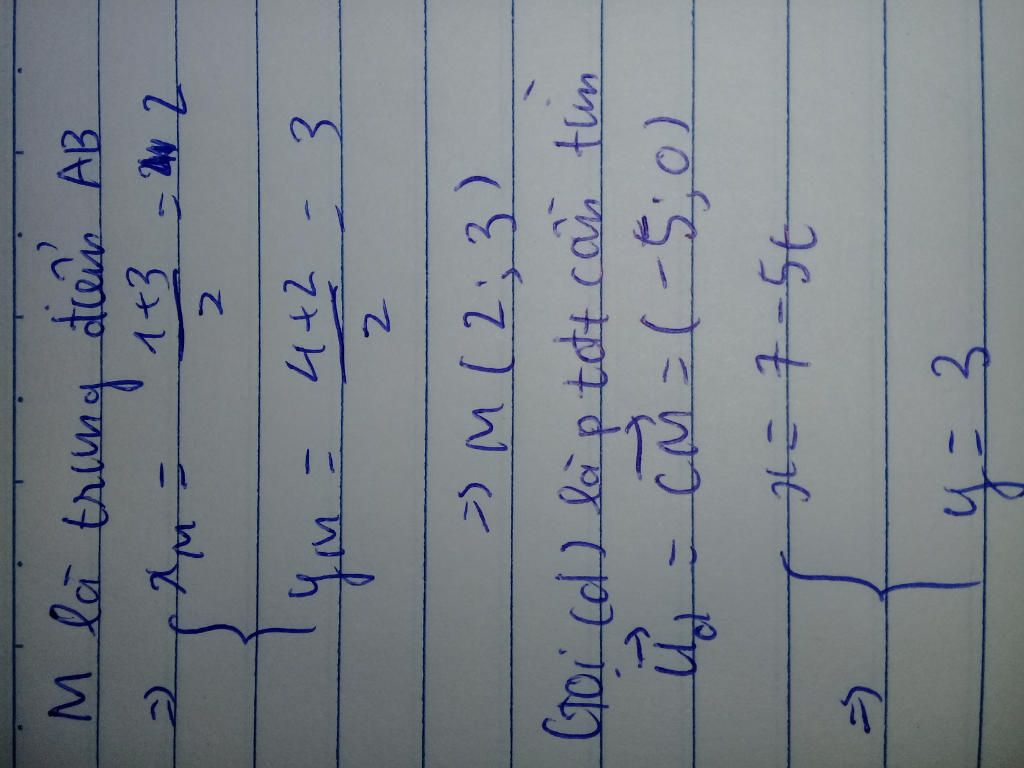 M là trung điểm AB
=> { x_M = (1+3)/2 = 2
y_M = (4+2)/2 = 3
=> M (2; 3)
Gọi (d) là ptdt cần tìm
u_d→ = CM→ = (-5; 0)
=> { x = 7 - 5t
y = 3